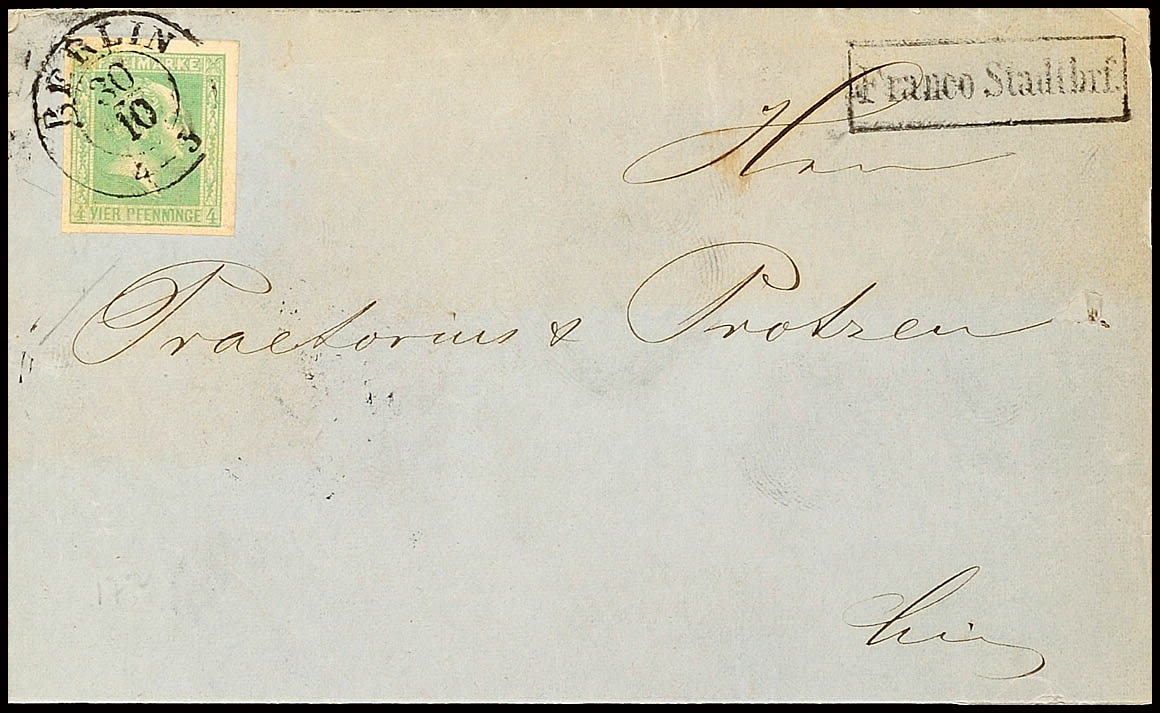 BERLIN
30
10
4 – 3
FREIMARKE
4 VIER PFENNINGE 4
Franco Stadtbrf.
Herrn
Praetorius & Protzen
hier